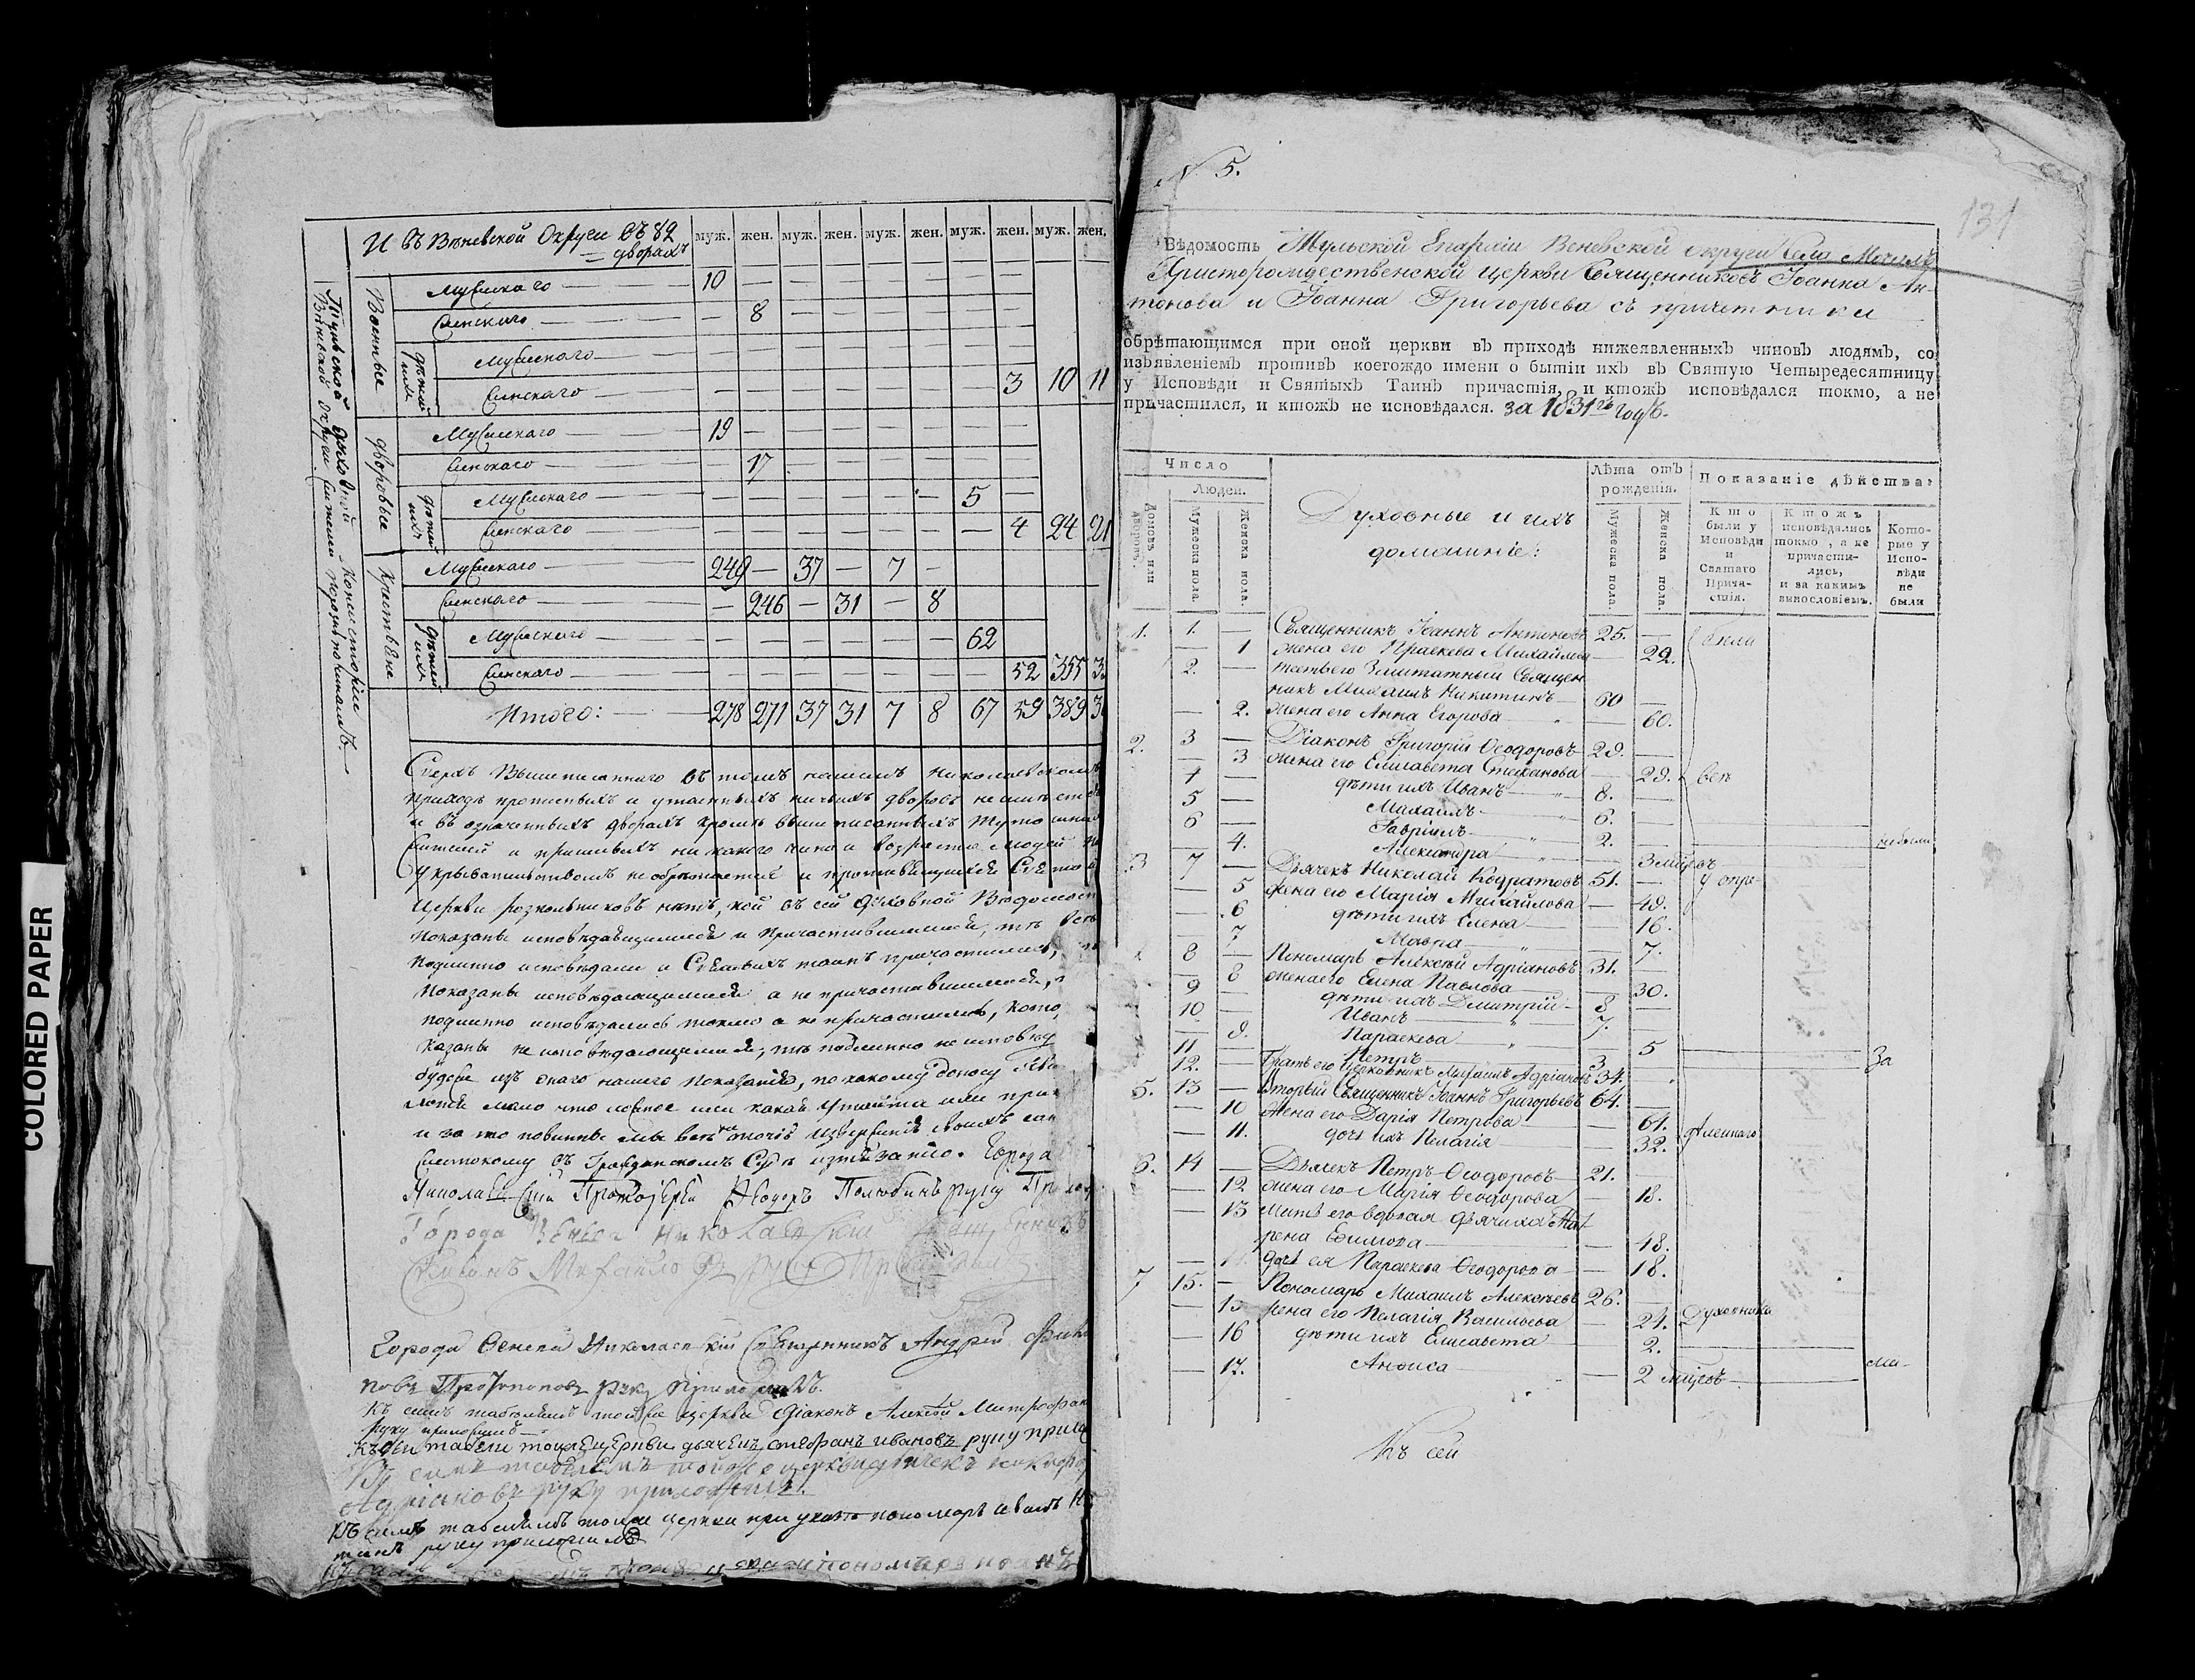 COLORED PAPER
И въ Веневской Округи въ 82 дворахъ
муж. жен. муж. жен. муж. жен. муж. жен. муж. жен.
Тульской духовной Консисторіи
Веневской округи
Военные
Мужскаго 10
Женскаго 8
дѣтей ихъ
Мужскаго
Женскаго 3 10 11
Дворовые
Мужскаго 19
Женскаго 17
дѣтей ихъ
Мужскаго 5
Женскаго 4 24 21
Крестьяне
Мужскаго 249 37 7
Женскаго 246 31 8
дѣтей ихъ
Мужскаго 62
Женскаго 52 355
Итого: 278 271 37 31 7 8 67 59 389
Сверхъ Вышеписаннаго въ томъ нашемъ Николаевскомъ
приходѣ прописныхъ и утаенныхъ ничьихъ дворовъ не
и въ означенныхъ дворахъ кромѣ вышеписанныхъ
жителей и пришлыхъ никакого чина и возраста людей
укрывательствомъ не обрѣтается и противящихся Святой
Церкви розкольниковъ нѣтъ, кои въ сей духовной Вѣдомости
показаны исповѣдавшимися и Причастившимися, тѣ всѣ
подлинно исповѣдали и Святыхъ таинъ причастились,
показаны исповѣдающимися а не причастившимися,
подлинно исповѣдались токмо а не причастились, кото
казаны не исповѣдающимися, тѣ подлинно не исповѣд
будеже изъ онаго нашего показанія, по какому доносу
хотя мало что ложное или какая утайка или при
и за то повинны мы всѣ не точію изверженію своихъ сан
жестокому въ Гражданскомъ Судѣ изтязанію. Города
Николаевскій Протоіерей Ѳеодоръ руку
Города Венева Николаевскій Священникъ
Михайло руку
Города Венева Николаевскій Священникъ Андрей
Протопоповъ руку приложилъ.
Къ симъ табелямъ тойже церкви діаконъ Алексѣй Митрофан
руку приложилъ
Къ сей табели тоя же церкви дьячекъ Стефанъ Ивановъ руку прило
Къ симъ табелямъ тойже церкви дьячекъ
Адріановъ руку приложилъ.
Къ симъ табелямъ тойже церкви пономарь Иванъ
руку приложилъ
пономарь Иванъ
N 5.
131
Вѣдомость Тульской Епархіи Веневской округи Села
Христорождественской церкви Священниковъ Іоанна Ан-
тонова и Іоанна Григорьева съ причетники
обрѣтающимся при оной церкви въ приходѣ нижеявленныхъ чиновъ людямъ, со
изъявленіемъ противъ коегождо имени о бытіи ихъ въ Святую Четыредесятницу
у Исповѣди и Святыхъ Таинъ причастія, и ктожъ исповѣдался токмо, а не
причастился, и ктожъ не исповѣдался. за 1831й Годъ.
Число
Людей.
Домовъ или дворовъ.
Мужеска пола.
Женска пола.
Духовные и ихъ
домашніе:
Лѣта отъ рожденія.
Мужеска пола.
Женска пола.
Показаніе дѣйства:
Кто были у Исповѣди и Святаго Причастія.
Ктожъ исповѣдались токмо, а не причастились, и за какимъ винословіемъ.
Которые у Исповѣди не были
1. 1. — Священникъ Іоаннъ Антоновъ 25. —
— 1 жена его Праскева Михайлова — 22.
2. — тесть его Заштатный Священ
никъ Михаилъ Никитинъ 60 —
— 2. жена его Анна Егорова — 60.
2. 3 — Діаконъ Григорій Ѳеодоровъ 29. —
— 3 жена его Елисавета Стефанова — 29. всѣ
4 — дѣти ихъ Иванъ 8. —
5 — Михаилъ 6. —
6 — Гавріилъ 2. —
— 4. Александра — 3 не были
3 7 — Дьячекъ Николай Кодратовъ 51. —
— 5 жена его Марія Михайлова — 49.
— 6 дѣти ихъ Елена — 16.
— 7 Мавра — 7.
8 — Пономарь Алексѣй Адріановъ 31. —
— 8 жена его Елена Павлова — 30.
9 — дѣти ихъ Дмитрій 8 —
10 — Иванъ 7. —
— 9. Параскева — 5
11 — Петръ 3 За
12. — братъ его Церковникъ Михаилъ Адріановъ 34. —
5. 13 — Вторый Священникъ Іоаннъ Григорьевъ 64. —
— 10 жена его Дарія Петрова — 61.
— 11. дочь ихъ Пелагія — 32.
6. 14 — Дьячекъ Петръ Ѳеодоровъ 21. —
— 12 жена его Марія Ѳеодорова — 18.
— 13 мать его вдовая дьячиха Мат
рена Ефимова — 48.
— дочь ея Параскева Ѳеодорова — 18.
7 15. — Пономарь Михаилъ Алексѣевъ 26. —
— 15 жена его Пелагія Васильева — 24. Духовника
— 16 дѣти ихъ Елисавета — 2.
— 17. Анфиса — 2 ма-
Къ сей